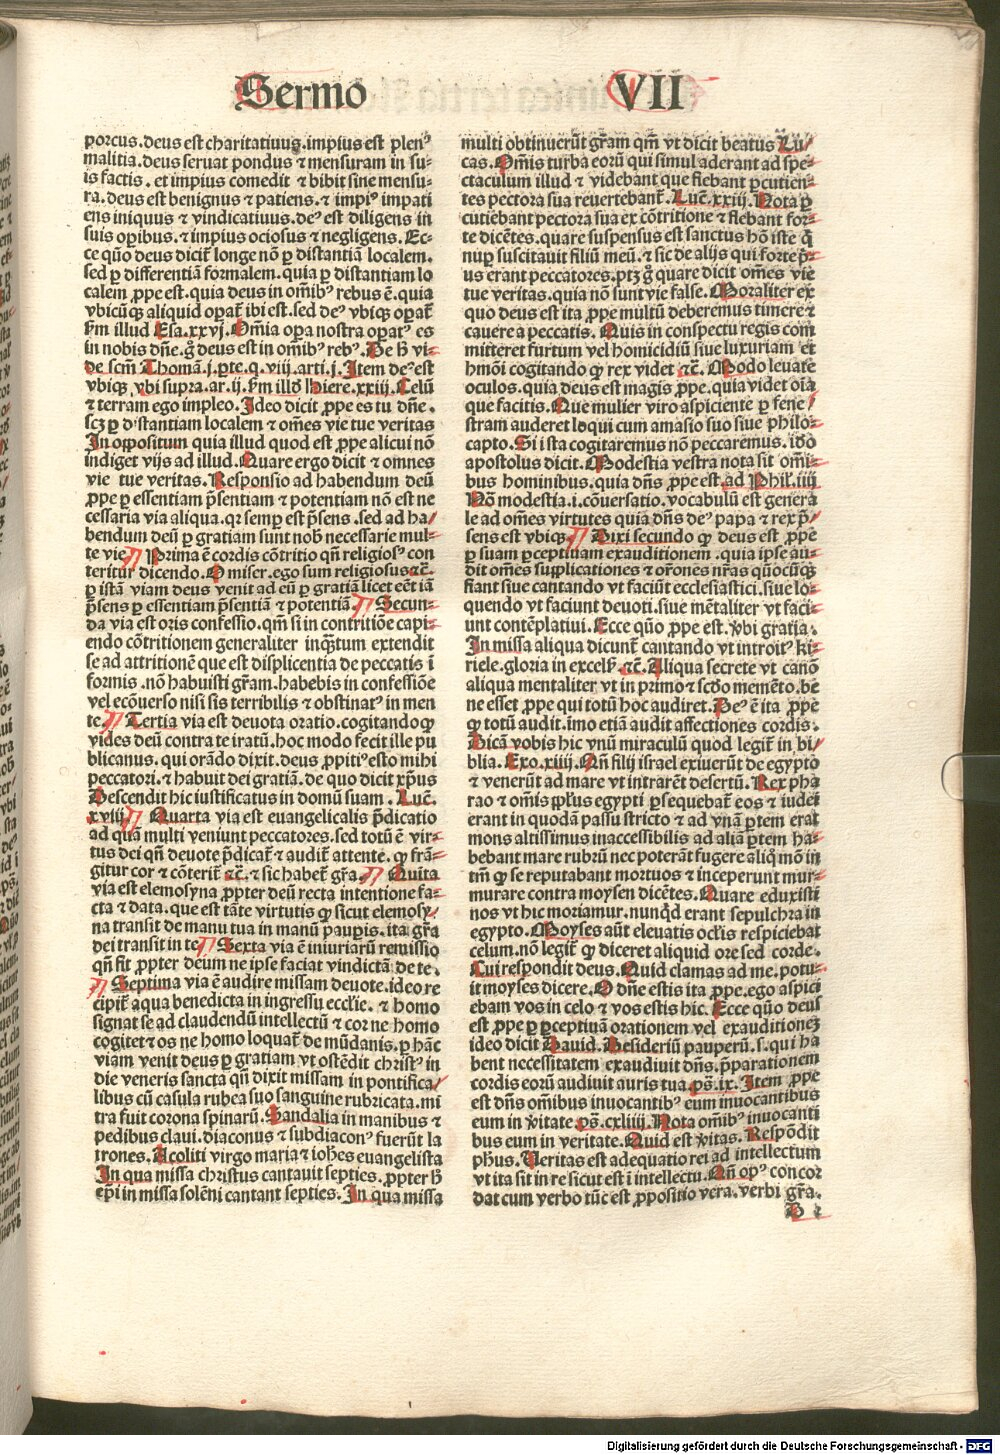 Sermo VII
porcus.deus est charitatiuus.impius est plenꝰ
malitia.deus seruat pondus ⁊ mensuram in su-
is factis. et impius comedit ⁊ bibit sine mensu-
ra.deus est benignus ⁊ patiens. ⁊ impiꝰ impati
ens iniquus ⁊ vindicatiuus.deꝰ est diligens in
suis oꝑibus.⁊ impius ociosus ⁊ negligens. Ec-
ce quō deus dicit̃ longe nō ꝑ distantiā localem.
sed ꝑ differentiā formalem.quia ꝑ distantiam lo
calem ꝓpe est.quia deus in om̄ibꝰ rebus ē.quia
vbicūqꝫ aliquid oꝑat̃ ibi est.sed deꝰ vbiqꝫ oꝑat̃
ẜm illud Esa.xxvj.Om̄ia oꝑa nostra oꝑatꝰ es
in nobis dn̄e.g̊ deus est in om̄ibꝰ rebꝰ.De h̄ vi-
de scm̄ Thomā.j.ꝑte.q.viij.arti.j.Item deꝰ est
vbiqꝫ,vbi supra.ar.ij.ẜm illd̄ Hiere.xxiij.Celū
⁊ terram ego impleo.Ideo dicit ꝓpe es tu dn̄e.
scꝫ ꝑ distantiam localem ⁊ om̄es vie tue veritas
In oppositum quia illud quod est ꝓpe alicui nō
indiget vijs ad illud.Quare ergo dicit ⁊ omnes
vie tue veritas.Responsio ad habendum deū
ꝓpe ꝑ essentiam p̄sentiam ⁊ potentiam nō est ne
cessaria via aliqua.qꝛ semꝑ est p̄sens.sed ad ha/
bendum deū ꝑ gratiam sunt nob̄ necessarie mul-
te vie ¶ Prima ē cordis cōtritio qn̄ religiosꝰ con
teritur dicendo.O miser.ego sum religiosus ⁊c̄.
ꝑ istā viam deus venit ad eū ꝑ gratiā licet eēt iā
p̄sens ꝑ essentiam p̄sentiā ⁊ potentiā ¶ Secun-
da via est oris confessio.qm̄ si in contritiōe capi-
endo cōtritionem generaliter inqꝫtum extendit
se ad attritionē que est displicentia de peccatis ī
formis.nō habuisti gr̄am.habebis in confessiōe
vel ecōuerso nisi sis terribilis ⁊ obstinatꝰ in men
te.¶ Tertia via est deuota oratio.cogitando ꝙ
vides deū contra te iratū.hoc modo fecit ille pu
blicanus.qui orādo dixit.deus ꝓpitiꝰ esto mihi
peccatori.⁊ habuit dei gratiā.de quo dicit xp̄us
Descendit hic iustificatus in domū suam.Luc̄.
xviij ¶ Quarta via est euangelicalis p̄dicatio
ad quā multi veniunt peccatores.sed totū ē vir-
tus dei qn̄ deuote p̄dicat̃ ⁊ audit̃ attente.ꝙ frā-
gitur cor ⁊ cōterit̃ ⁊c̄.⁊ sic habet̃ gr̄a.¶ Quīta
via est elemosyna ꝓpter deū recta intentione fa-
cta ⁊ data.que est tāte virtutis ꝙ sicut elemosy/
na transit de manu tua in manū pauꝑis.ita gr̄a
dei transit in te ¶ Sexta via ē iniuriarū remissio
qn̄ fit ꝓpter deum ne ipse faciat vindictā de te.
¶ Septima via ē audire missam deuote.ideo re
cipit̃ aqua benedicta in ingressu eccl̄ie. ⁊ homo
signat se ad claudendū intellectū ⁊ cor ne homo
cogitet ⁊ os ne homo loquat̃ de mūdanis.ꝑ hāc
viam venit deus ꝑ gratiam vt ostēdit christꝰ in
die veneris sancta qn̄ dixit missam in pontifica/
libus cū casula rubea suo sanguine rubricata.mi
tra fuit corona spinarū.Sandalia in manibus ⁊
pedibus claui.diaconus ⁊ subdiaconꝰ fuerūt la
trones.Acoliti virgo maria ⁊ ioh̄es euangelista
In qua missa christus cantauit septies.ꝓpter h̄
ep̄i in missa solēni cantant septies.In qua missa
multi obtinuerūt gr̄am qm̄ vt dicit beatus Lu/
cas.Om̄is turba eorū qui simul aderant ad spe-
ctaculum illud ⁊ videbant que flebant ꝑcutien-
tes pectora sua reuertebant̃.Luc̄.xxiij.Nota ꝑ
cutiebant pectora sua ex cōtritione ⁊ flebant for-
te dicētes.quare suspensus est sanctus hō iste q̄
nuꝑ suscitauit filiū meū.⁊ sic de alijs qui forte p̄-
us erant peccatores.ptꝫ g̊ quare dicit om̄es vie
tue veritas.quia nō sunt vie false.Moraliter ex
quo deus est ita ꝓpe multū deberemus timere ⁊
cauere a peccatis.Quis in conspectu regis com
mitteret furtum vel homicidiū siue luxuriam et
hm̄oi cogitando ꝙ rex videt ⁊c̄.Modo leuate
oculos.quia deus est magis ꝓpe.quia videt oīa
que facitis.Que mulier viro aspiciente ꝑ fene/
stram auderet loqui cum amasio suo siue philo-
capto.Si ista cogitaremus nō peccaremus.idō
apostolus dicit.Modestia vestra nota sit om̄i-
bus hominibus.quia dn̄s ꝓpe est.ad Phil.iiij
Nō modestia.i.cōuersatio.vocabulū est genera
le ad om̄es virtutes quia dn̄s deꝰ papa ⁊ rex p̄/
sens est vbiqꝫ.¶ Dixi secundo ꝙ deus est ꝓpe
ꝑ suam ꝑceptiuam exauditionem.quia ipse au-
dit om̄es supplicationes ⁊ or̄ones nr̄as quōcūqꝫ
fiant siue cantando vt faciūt ecclesiastici.siue lo-
quendo vt faciunt deuoti.siue mētaliter vt faci-
unt contēplatiui.Ecce quō ꝓpe est.v̄bi gratia.
In missa aliqua dicunt̃ cantando vt introitꝰ ki-
riele.gloria in excelsꝭ.⁊c̄.Aliqua secrete vt canō
aliqua mentaliter vt in primo ⁊ scdo memēto.be
ne esset ꝓpe qui totū hoc audiret.Deꝰ ē ita ꝓpe
ꝙ totū audit.imo etiā audit affectiones cordis.
Dicā vobis hic vnū miraculū quod legit̃ in bi/
blia.Exo.xiiij.Qn̄ filij israel exiuerūt de egypto
⁊ venerūt ad mare vt intrarēt desertū.Rex pha
rao ⁊ om̄is ppl̄us egypti ꝑsequebat̃ eos ⁊ iudei
erant in quodā passu stricto ⁊ ad vnā ꝑtem erāt
mons altissimus inaccessibilis ad aliā ꝑtem ha-
bebant mare rubrū nec poterāt fugere aliq̄ mō in
tm̄ ꝙ se reputabant mortuos ⁊ inceperunt mur-
murare contra moysen dicētes.Quare eduxisti
nos vt hic moriamur.nunqd̄ erant sepulchra in
egypto.Moyses aūt eleuatis ocl̄is respiciebat
celum.nō legit̃ ꝙ diceret aliquid ore sed corde.
Cui respondit deus.Quid clamas ad me.potu-
it moyses dicere.O dn̄e estis ita ꝓpe.ego aspici
ebam vos in celo ⁊ vos estis hic.Ecce quō deus
est ꝓpe ꝑ ꝑceptiuā orationem vel exauditionē
ideo dicit Dauid.Desideriū pauperū.s.qui ha
bent necessitatem exaudiuit dn̄s.p̄parationem
cordis eorū audiuit auris tua.ps̄.ix.Item ꝓpe
est dn̄s om̄ibus inuocantibꝰ eum inuocantibus
eum in v̄itate ps̄.cxliiij.Nota om̄ibꝰ inuocanti
bus eum in veritate.Quid est v̄itas.Respōdit
ph̄us.Veritas est adequatio rei ad intellectum
vt ita sit in re sicut est ī intellectu.Qn̄ opꝰ concor
dat cum verbo tūc est ꝓpositio vera.verbi gr̄a.
Digitalisierung gefördert durch die Deutsche Forschungsgemeinschaft - DFG